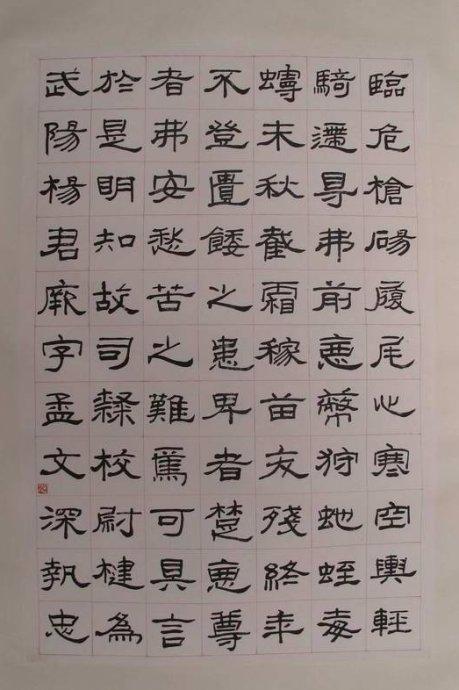 臨危槍碭履尾心寒空輿輕
騎遰㝵弗前惡幣狩虵蛭毒
蟃未秋截霜稼苗夭殘終年
不登匱餧之患卑者楚惡尊
者弗安愁苦之難焉可具言
於是明知故司隸校尉楗為
武陽楊君厥字孟文深執忠